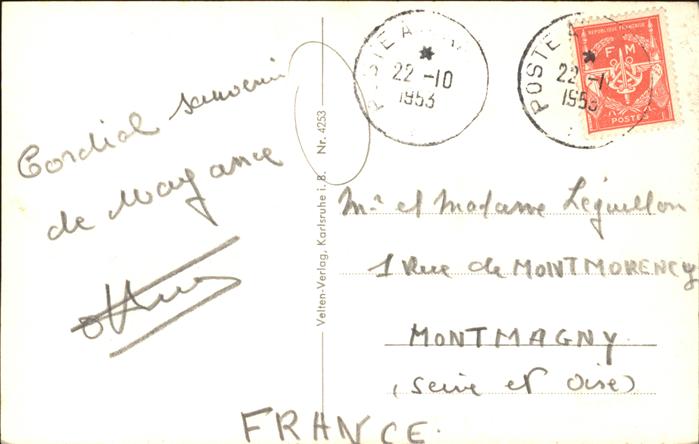 Cordial souvenir
de Mayence
Velten-Verlag, Karlsruhe i. B. Nr. 4253
POSTE A
22-10
1953
POSTE A
22-1
1953
REPUBLIQUE FRANÇAISE
F M
POSTES
Mr et Madame Léguillon
1 Rue de MONTMORENCY
MONTMAGNY
(Seine et Oise)
FRANCE.